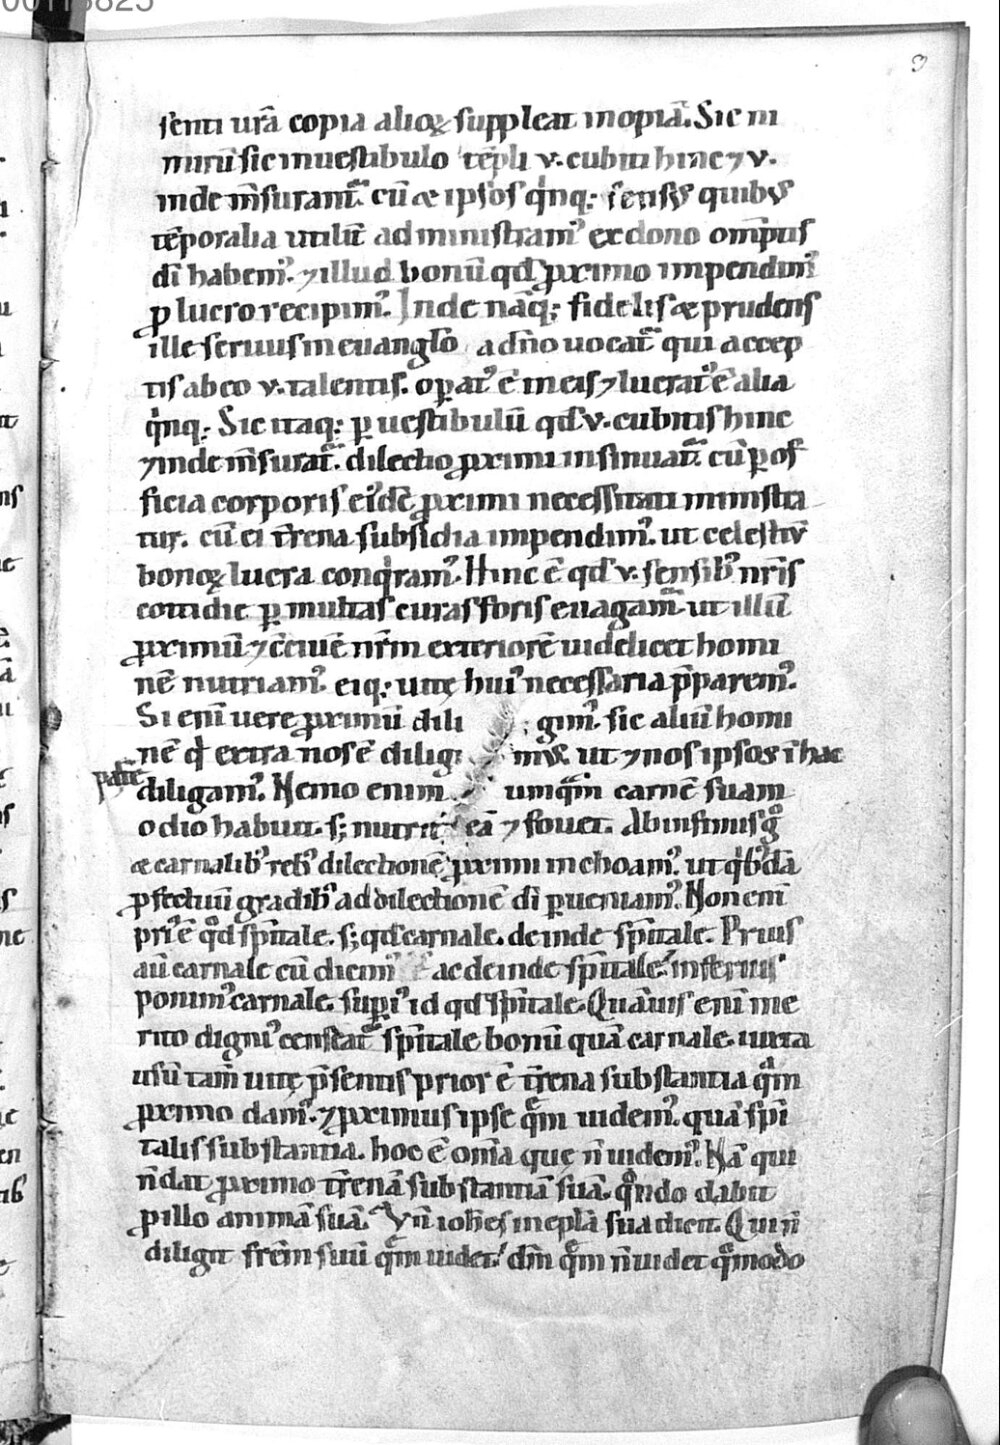 3
senti urā copia alioꝝ suppleat inopiā. Sic ni
mirū sic in uestibulo tēpli v. cubiti hinc ⁊ v.
inde m̄surant᷑. cū æ ipsos qͥnq; sensꝰ quibꝰ
tēporalia utilit̄ administramꝰ ex dono om̄ptis
dī habemꝰ. ⁊ illud bonū qd̄ ꝓximo impendimꝰ
ꝓ lucro recipimꝰ. Inde nāq; fidelis æ prudens
ille seruus in euanglō a dn̄o uocat᷑ qui accep
tis ab eo v. talentis. oꝑatꝰ ē in eis ⁊ lucratꝰ ē alia
qͥnq;. Sic itaq; ꝑ uestibulū qd̄ v. cubitis hinc
⁊ inde m̄surat᷑. dilectio ꝓximi insinuat᷑. cū ꝑ of
ficia corporis eiꝰdē ꝓximi necessitati ministra
tur. cū ei t̄rena subsidia impendimꝰ. ut celestiū
bonoꝝ lucra conqͥramꝰ. Hinc ē qd̄ v. sensibꝰ nr̄is
cottidie ꝑ multas curas foris euagam᷑. ut illū
ꝓximū ⁊ c̄ciuē nr̄m exteriorē uidelicet homi
nē nutriamꝰ. eiq; uitę huiꝰ necessaria p̄paremꝰ.
Si eni uere ꝓximū dili gimꝰ. sic aliū homi
nē qͥ extra nos ē diligi mꝰ. ut ⁊ nos ipsos ī hac
diligamꝰ. Nemo enim umqᷓm carnē suam
odio habuit. s; nutrit eā ⁊ fouet. Ab infimis gͦ
æ carnalibꝰ rebꝰ dilectionē ꝓximi inchoamꝰ. ut qͥbꝰdā
ꝓfectuū gradibꝰ ad dilectionē dī ꝑueniamꝰ. Non enī
priꝰ ē qͦd sp̄itale. s; qd̄ carnale. deinde sp̄itale. Prius
aū carnale cū dicimꝰ ac deinde sp̄itale. inferius
ponimꝰ carnale. suꝑiꝰ id qd̄ sp̄itale. Quāuis enī me
rito digniꝰ censeat᷑ sp̄itale bonū quā carnale. iuxta
usū tam̄ uitę p̄sentis prior ē t̄rena substantia qᷓm
ꝓximo damꝰ. ⁊ ꝓximus ipse qͤm uidemꝰ. quā spī
talis substantia. hoc ē om̄ia quę n̄ uidemꝰ. Nā qui
n̄ dat ꝓximo t̄renā substantiā suā. qͦm̄do dabit
ꝓ illo animā suā. Vn̄ ioh̄es in ep̄la sua dicit. Qui n̄
diligit fr̄em suū qͤm uidet. dm̄ qͤm n̄ uidet qͦmodo